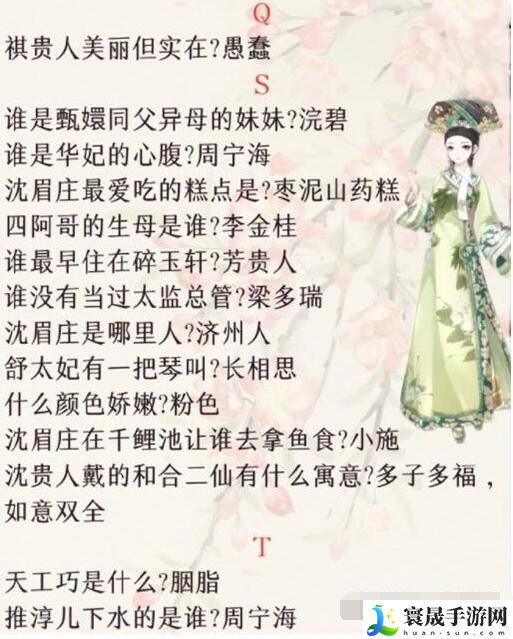 Q
祺贵人美丽但实在?愚蠢
S
谁是甄嬛同父异母的妹妹?浣碧
谁是华妃的心腹?周宁海
沈眉庄最爱吃的糕点是?枣泥山药糕
四阿哥的生母是谁?李金桂
谁最早住在碎玉轩?芳贵人
谁没有当过太监总管?梁多瑞
沈眉庄是哪里人?济州人
舒太妃有一把琴叫?长相思
什么颜色娇嫩?粉色
沈眉庄在千鲤池让谁去拿鱼食?小施
沈贵人戴的和合二仙有什么寓意?多子多福，
如意双全
T
天工巧是什么?胭脂
推淳儿下水的是谁?周宁海
寰晟手游网
huan-sun.com